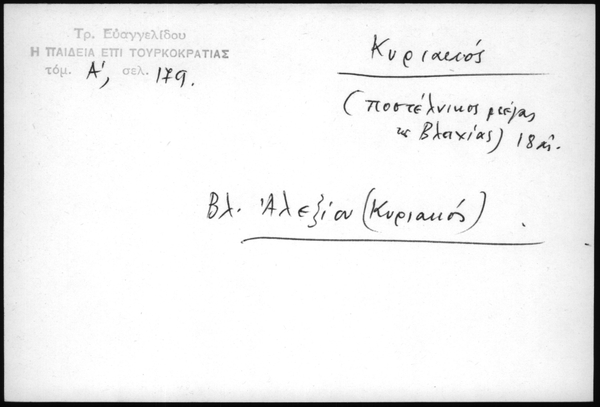 Τρ. Εὐαγγελίδου
Η ΠΑΙΔΕΙΑ ΕΠΙ ΤΟΥΡΚΟΚΡΑΤΙΑΣ
τόμ. Α', σελ. 179.
Κυριακός
(ποστέλνικος μέγας
τῆς Βλαχίας) 18 αἰ.
Βλ. Ἀλεξίου (Κυριακός).